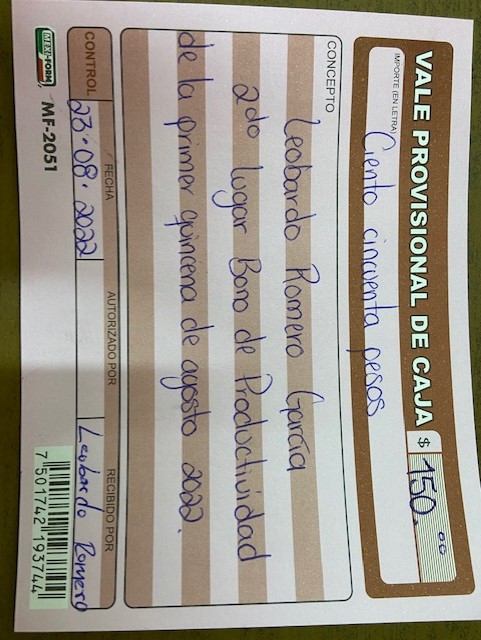 VALE PROVISIONAL DE CAJA $ 150.00
IMPORTE (EN LETRA)
Ciento cincuenta pesos
CONCEPTO
Leobardo Romero García
2do lugar Bono de Productividad
de la primer quincena de agosto 2022.
CONTROL
FECHA
AUTORIZADO POR
RECIBIDO POR
23.08.2022
Leobardo Romero
MEXI-FORM
MF-2051
7 501742 193744